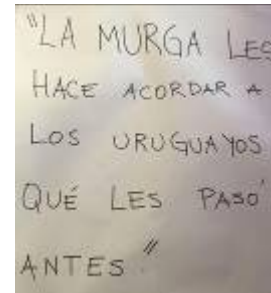 "LA MURGA LES
HACE ACORDAR A
LOS URUGUAYOS
QUÉ LES PASÓ
ANTES"